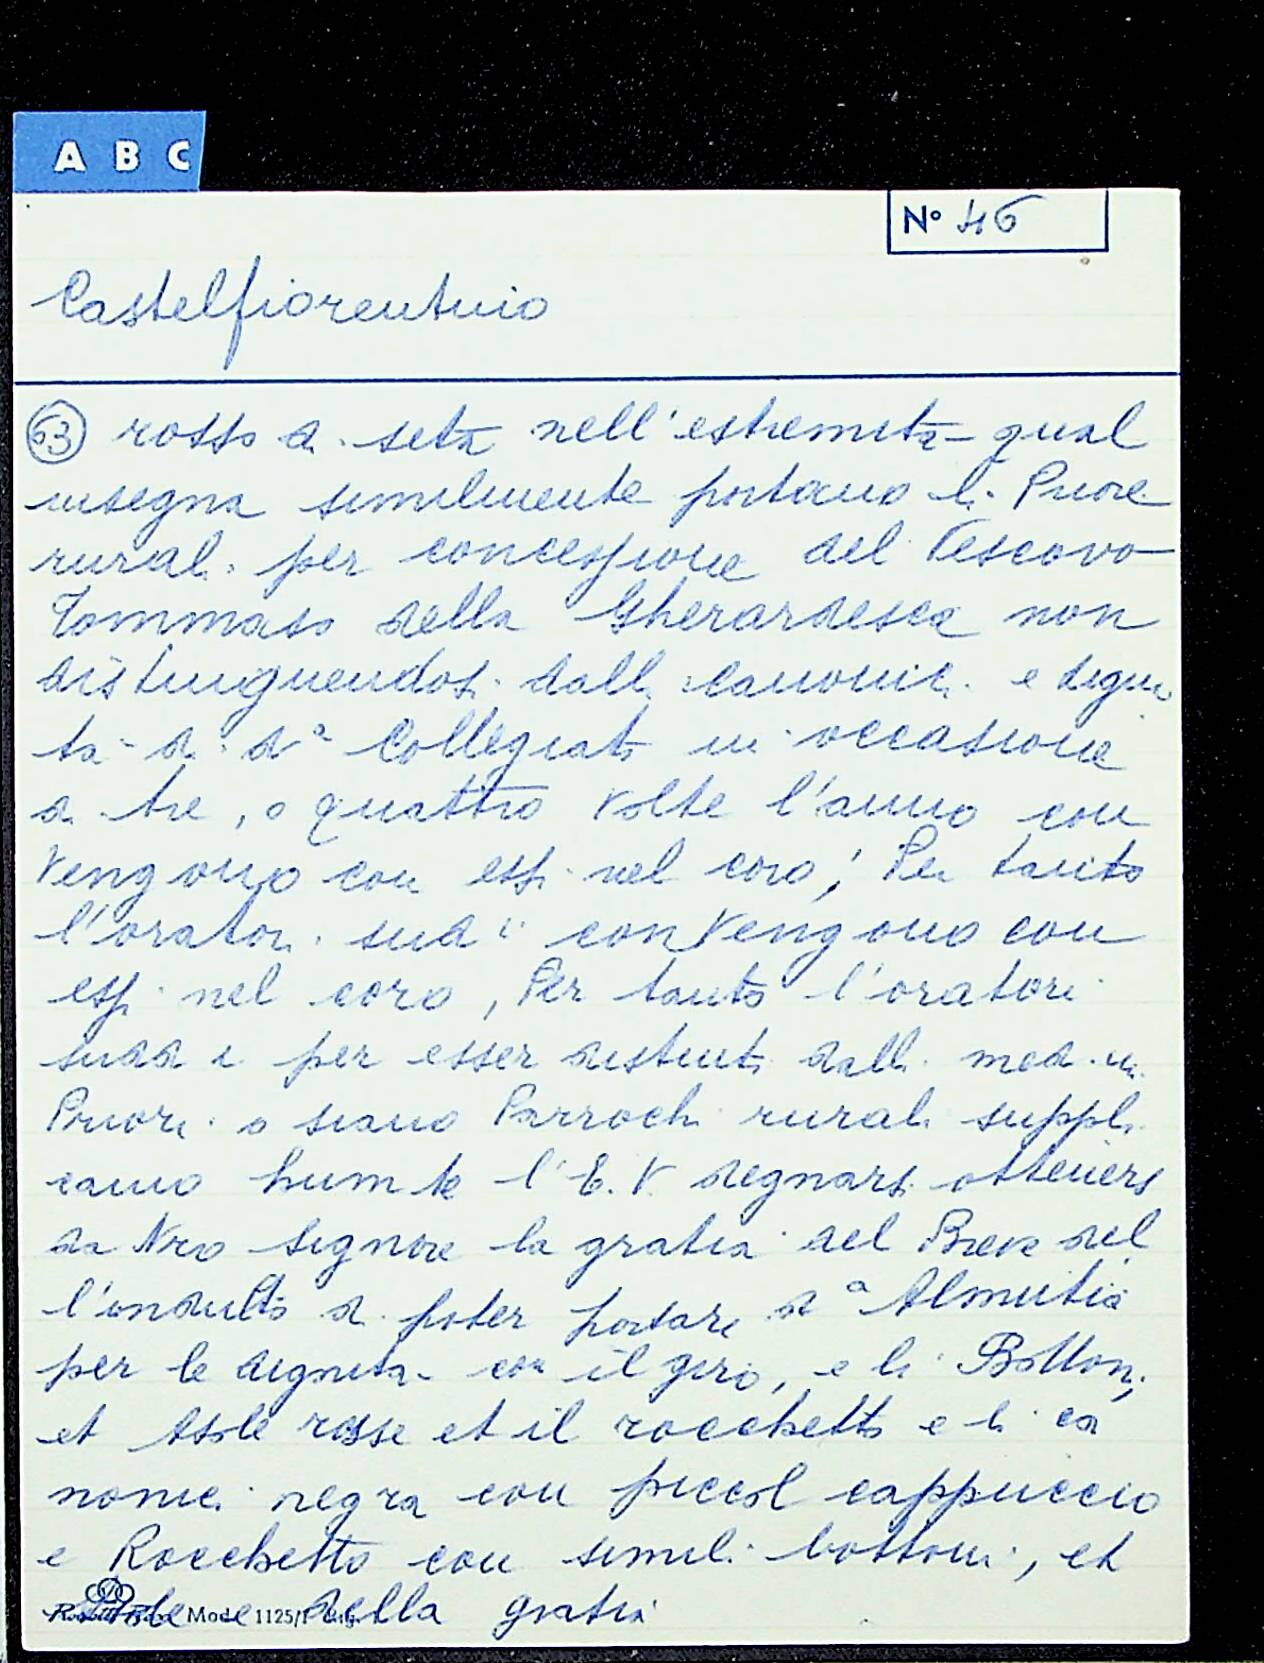 A B C
N° 46
Castelfiorentino
53 rosso di seta nell'estremità qual
insegna similmente portano li Priori
rurali per concessione del Vescovo
Tommaso della Gherardesca non
distinguendosi dalli canonici e digni
tà di da Collegiata in occasione
di tre, o quattro volte l'anno con
vengono con essi nel coro; Per tanto
l'oratori sudi convengono con
essi nel coro, Per tanto l'oratori
suddi per esser distinti dalli med.mi
Priori o siano Parrochi rurali suppli
cano humte l'E.V. degnarsi ottenersi
da Nro Signore la gratia del Breve del
l'indulto di poter portare da Almutia
per le dignità con il giro, e li Bottoni
et Asole rosse et il rocchetto e li ca
nonici negra con piccol cappuccio
e Rocchetto con simili bottoni, et
Asole e della gratia
Mod. 1125/1